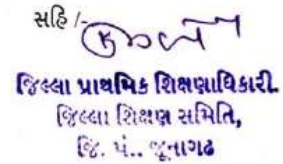 સહિ /-
જિલ્લા પ્રાથમિક શિક્ષણાધિકારી.
જિલ્લા શિક્ષણ સમિતિ,
જિ. પં.. જૂનાગઢ